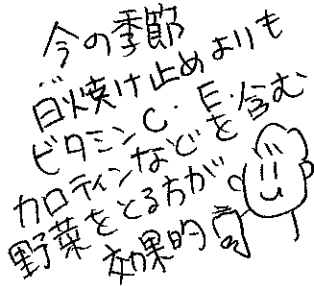 今の季節
日焼け止めよりも
ビタミンC・E・
カロティンなどを含む
野菜をとる方が
効果的